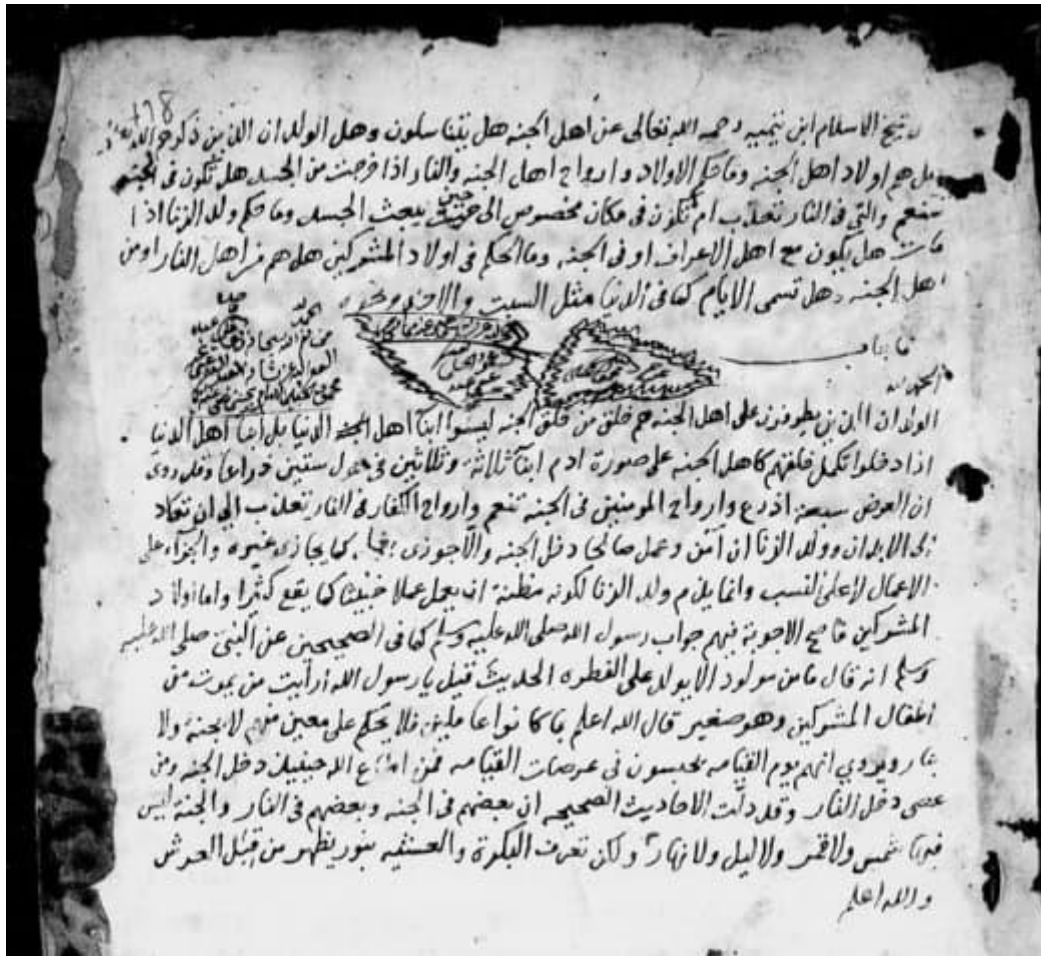 ١٦٨
شيخ الاسلام ابن تيميه رحمه الله تعالى عن اهل الجنه هل يتناسلون وهل الولدان الذين ذكرهم الله تعالى
هل هم اولاد اهل الجنه وما حكم الاولاد وارواح اهل الجنه والنار اذا خرجت من الجسد هل تكون في الجنه
تنعم والتي في النار تعذب ام تكون في مكان مخصوص الى حين يبعث الجسد وما حكم ولد الزنا اذا
مات هل يكون مع اهل الاعراف او في الجنه وما الحكم في اولاد المشركين هل هم من اهل النار او من
اهل الجنه وهل تسمى الايام كما في الدنيا مثل السبت والاحد ونحوه
فاجاب
الحمد لله
الولدان الذين يطوفون على اهل الجنه هم خلق من خلق الجنه ليسوا ابنا اهل الدنيا بل ابنا اهل الدنيا
اذا دخلوا تكمل خلقهم كاهل الجنه على صورة ادم ابنا ثلاثة وثلاثين في طول ستين ذراعا وقد روى
ان العرض سبعة اذرع وارواح المومنين في الجنه تنعم وارواح الكفار في النار تعذب الى ان تعاد
الى الابدان وولد الزنا ان آمن وعمل صالحا دخل الجنه والا جوزى بعمله كما يجازى غيره والجزآء على
الاعمال لا على النسب وانما يذم ولد الزنا لكونه مظنة ان يعمل عملا خبيثا كما يقع كثيرا واما اولاد
المشركين فاصح الاجوبة فيهم جواب رسول الله صلى الله عليه وسلم كما في الصحيحين عن النبي صلى الله عليه
وسلم انه قال ما من مولود الا يولد على الفطره الحديث قيل يا رسول الله أرأيت من يموت من
اطفال المشركين وهو صغير قال الله اعلم بما كانوا عاملين فلا يحكم على معين منهم لا بجنة ولا
بنار ويروي انهم يوم القيامه يمتحنون في عرصات القيامه فمن اطاع الله حينيذ دخل الجنه ومن
عصى دخل النار وقد دلّت الاحاديث الصحيحه ان بعضهم في الجنه وبعضهم في النار والجنة ليس
فيها شمس ولا قمر ولا ليل ولا نهار ولكن تعرف البكرة والعشيه بنور يظهر من قبل العرش
والله اعلم